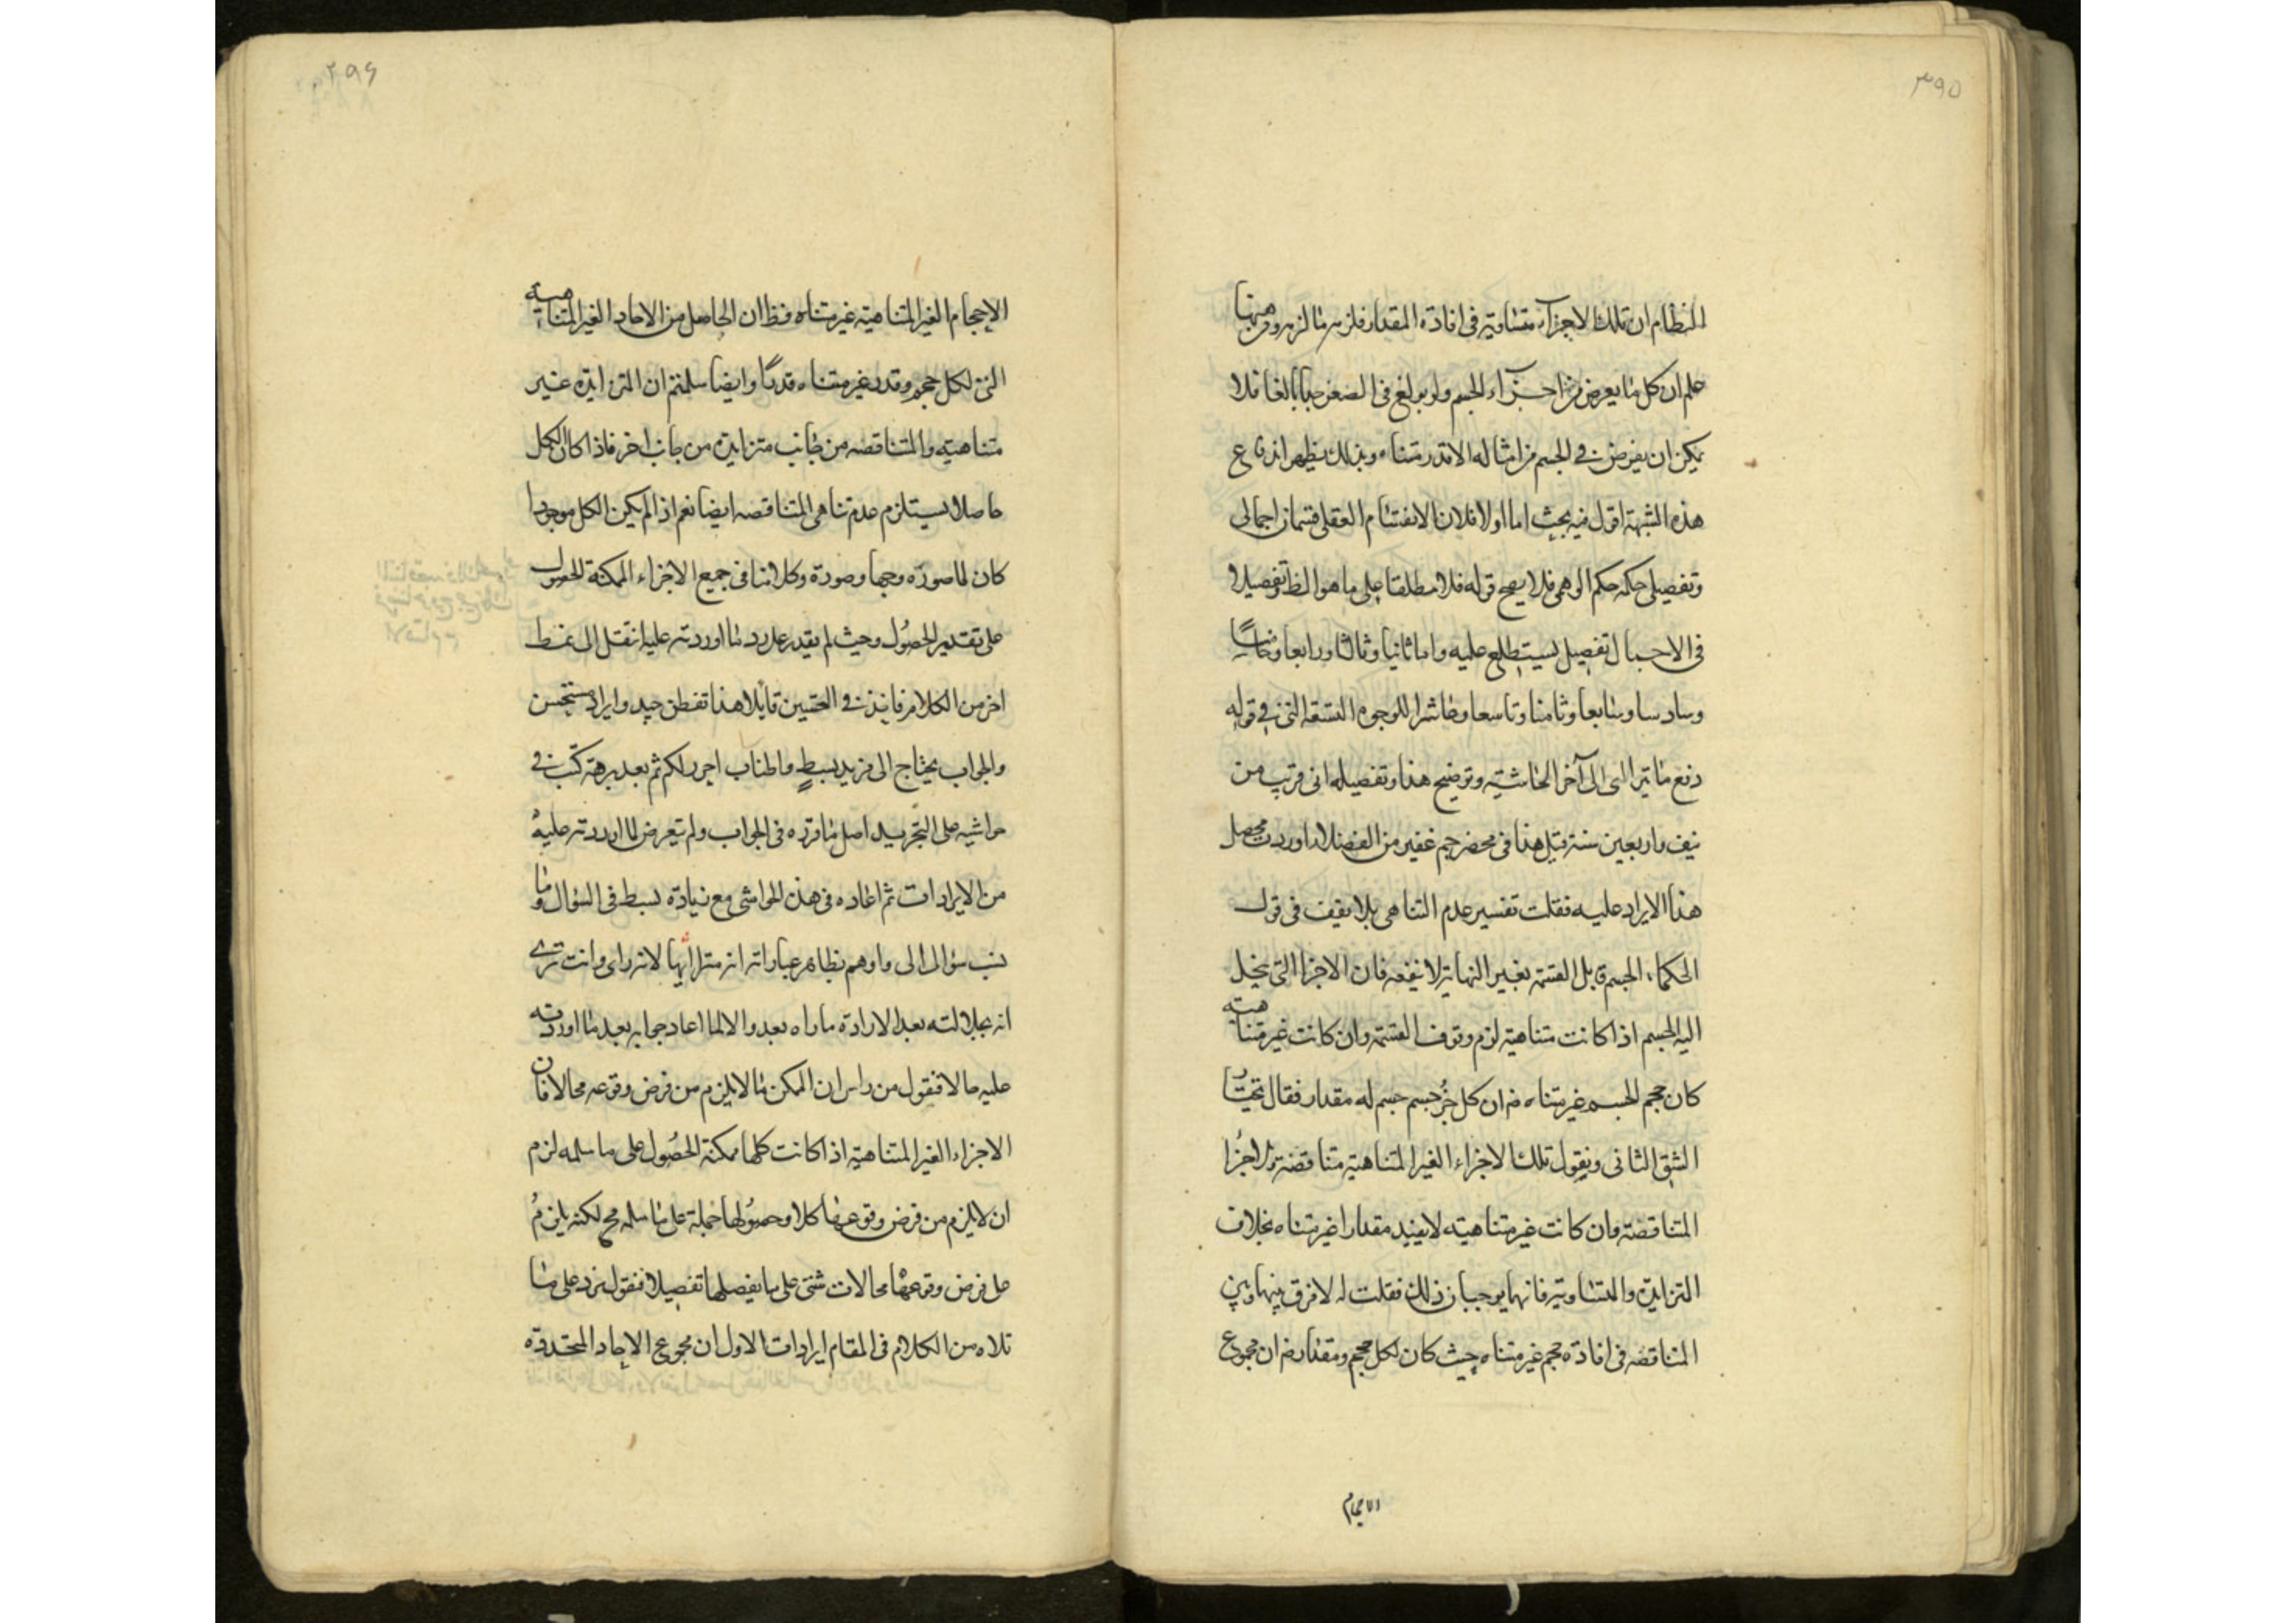 ۳۹۵
النظام ان تلك الاجزاء متساوية فى افادة المقدار فلزمه ما لزمه ومن هنا
علم ان كل ما يعرض من اجزاء الجسم ولو بولغ فى الصغر جبابا لغا فلا
يمكن ان يفرض فى الجسم من امثاله الا قدر متناه وبذلك يظهر اندفاع
هذه الشبهة اقول فيه بحث اما اولا فلان الانقسام العقلى قسمان اجمالى
وتفصيلى حكمه حكم الوهمى فلا يصح قوله فلا مطلقا على ما هو الظ وتفصيلا
فى الاجمال تفصيل ستطلع عليه واما ثانيا وثالثا ورابعا وخامسا
وسادسا وسابعا وثامنا وتاسعا وعاشرا للوجوه التسعة التى فى قوله
دفع ما يتراءى الى آخر الحاشية وتوضيح هذا وتفصيله انى قريب من
نيف واربعين سنة قبل هذا فى محضر جم غفير من الفضلاء اوردت محصل
هذا الايراد عليه فقلت تفسير عدم التناهى بلا يقف فى قول
الحكماء الجسم قابل القسمة بغير النهاية لا ينفعه فان الاجزا التى ينحل
اليه الجسم اذا كانت متناهية لزم وقوف القسمة وان كانت غير متناهية
كان حجم الجسم غير متناه ضر ان كل جزء جسم جسم له مقدار فقال تختار
الشق الثانى ونقول تلك الاجزاء الغير المتناهية متناقصة والاجزا
المتناقصة وان كانت غير متناهية لا يفيد مقدارا غير متناه بخلاف
المتزايدة والمتساوية فانهما يوجبان ذلك فقلت له لا فرق بينها وبين
المتناقصة فى افادة حجم غير متناه حيث كان لكل حجم ومقدار ضر ان مجموع
الاحجام
۲۹۶
الاحجام الغير المتناهية غير متناه فظ ان الحاصل من الاحاد الغير المتناهية
التى لكل حجم وقدر غير متناه قدرًا وايضا سلمتم ان المتزايدة غير
متناهية والمتناقصة من جانب متزايدة من جانب اخر فاذا كان الكل
حاصلا يستلزم عدم تناهى المتناقصة ايضا نعم اذا لم يكن الكل موجودا
كان لما صوره وجها وصورة وكلامنا فى جميع الاجزاء الممكنة الحصول
على تقدير الحصول وحيث لم يقدر على رد ما اوردته عليه انتقل الى نمط
اخر من الكلام قايلا هذا تفطن جيد وايراد مستحسن
والجواب يحتاج الى مزيد بسط واطناب احرر لكم ثم بعد برهة كتب فى
حواشيه على التجريد اصل ما قرره فى الجواب ولم يتعرض لما اوردته عليه
من الايرادات ثم اعاده فى هذه الحواشى مع زيادة بسط فى السؤال وما
نسب سؤالى الى واوهم بظاهر عباراته انه متراايها لانه راى وانت ترى
انه بجلالته بعد الارادة ما راه بعد والا لما اعاد جوابه بعد ما اوردته
عليه حالا فنقول من راس ان الممكن ما لا يلزم من فرض وقوعه محالا فان
الاجزاء الغير المتناهية اذا كانت كلها ممكنة الحصول على ما سلمه لزم
ان لا يلزم من فرض وقوعها كلا وحصولها جملة على ما سلمه مح لكنه يلزم
على فرض وقوعها محالات شتى على ما يفصلها تفصيلا فنقول نورد على ما
تلاه من الكلام فى المقام ايرادات الاول ان مجموع الاحاد المتحددة